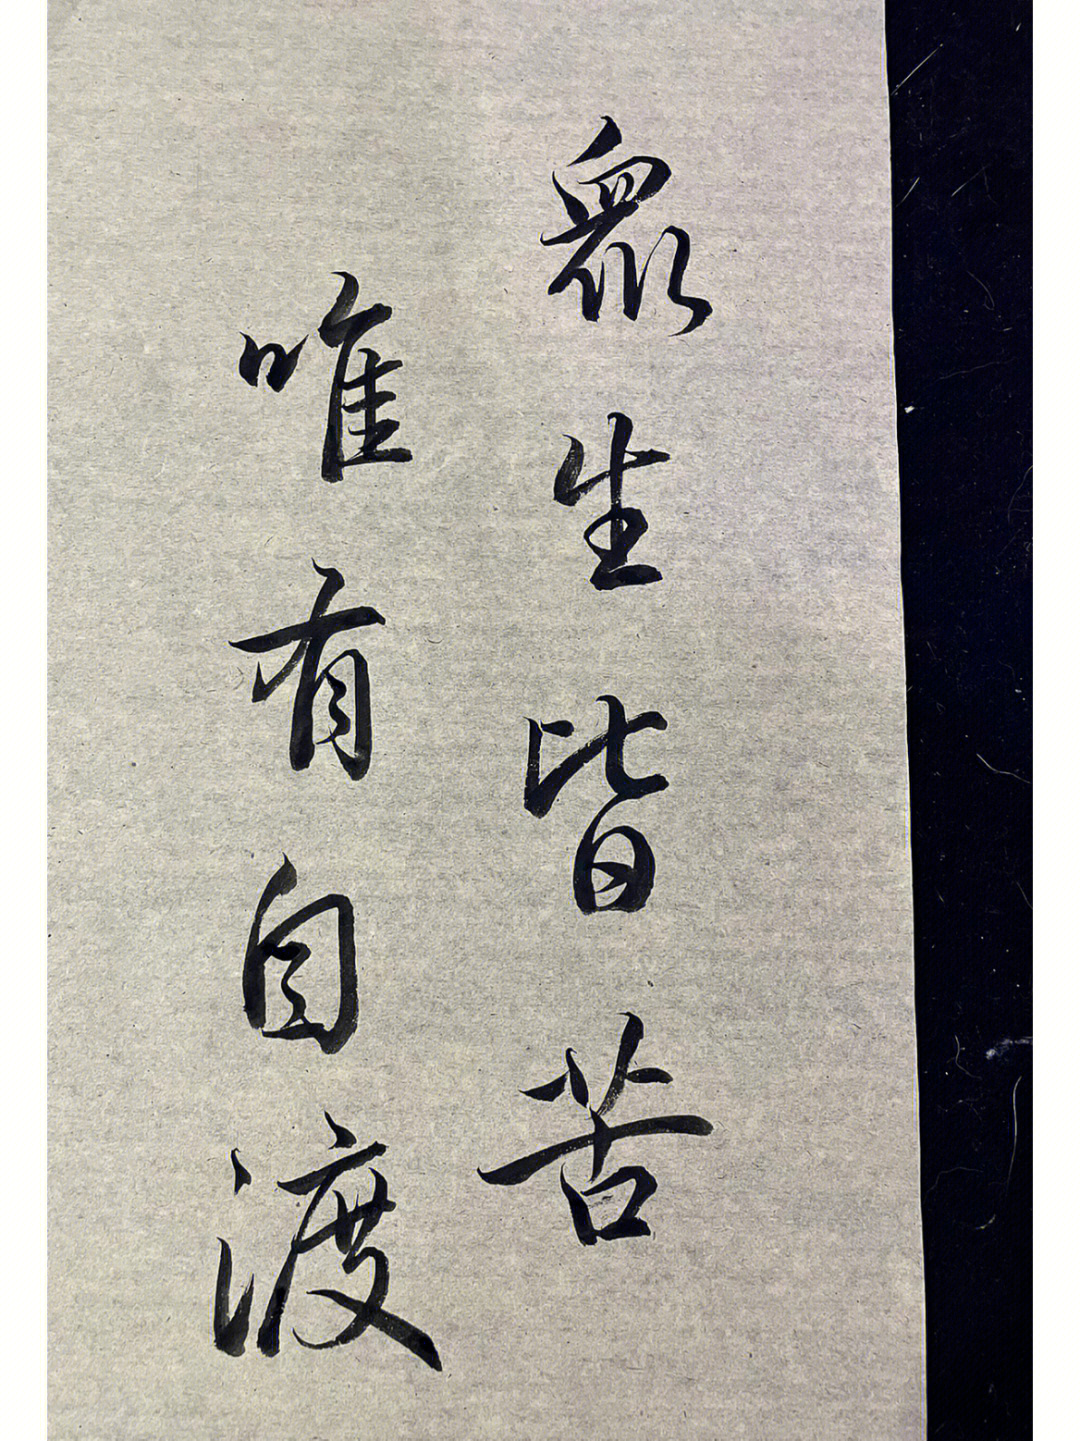 眾生皆苦
唯有自渡